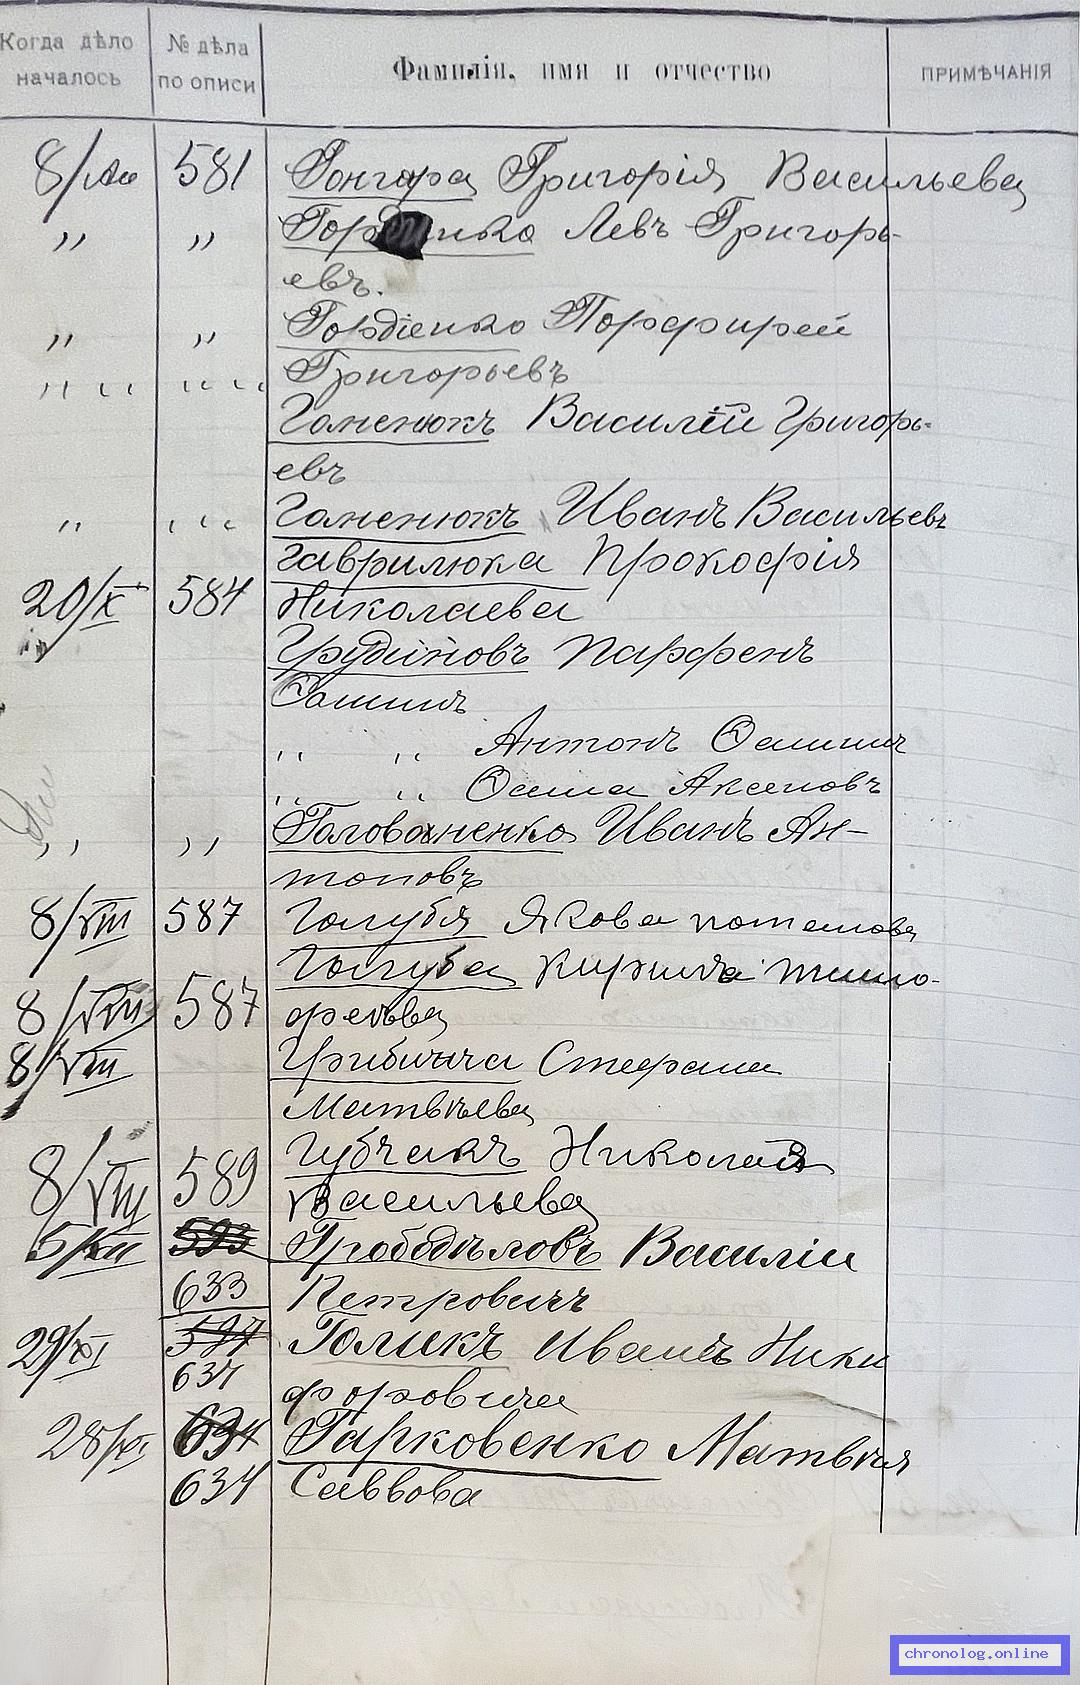 Когда дѣло началось
№ дѣла по описи
Фамилія, имя и отчество
ПРИМѢЧАНІЯ
8/ 581 Гонгара Григорія Васильева
" " Левъ Григорь-
евъ.
" " Гордіенко Порфирей
" " " " Григорьевъ
Ганенюкъ Василій Григорь-
евъ
" " " Ганенюкъ Иванъ Васильевъ
Гаврилюка Прокофія
20/X 584 Николаева
Грудіновъ Парфенъ
" " Антонъ Осипов
" " Осипа Аксеновъ
" " Голованенко Иванъ Ан-
тоновъ
8/VIII 587 Голубя Якова Потапова
Голуба Кирила Тимо-
8/VIII 587 феева
8/VIII Стефана
Матвѣева
Губчакъ Николай
8/VIII 589 Васильева
5/XII 593 Грободѣловъ Василіи
633 Петровичъ
29/XI 597 Голикъ Ивана Ники
634 форовича
28/XI 634 Гарковенко Матвѣя
634 Саввова
chronolog.online